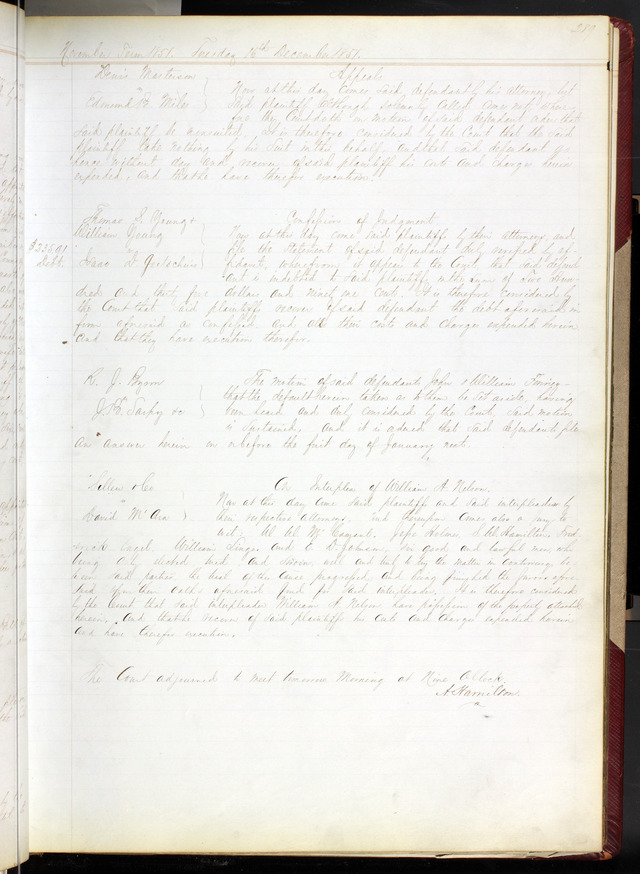 289
November Term 1851. Tuesday 16th December 1851.
Denis
vs
Edmund B. Miles
Appeal
Now at this day comes said defendant by his attorney, but
said plaintiff although solemnly called comes not, there
fore the Court doth on motion of said defendant order that
said plaintiff be nonsuited. It is therefore considered by the Court that the said
plaintiff take nothing by his suit in this behalf, and that said defendant go
hence without day and recover of said plaintiff his costs and charges herein
expended, and that he have therefor execution.
S. Young &
William Young
vs
Isaac D.
$235.91
Debt
Confession of Judgment.
Now at this day come said plaintiffs by their attorney, and
file the statement of said defendant duly verified by af-
fidavit, whereby it appears to the Court that said defend
ant is indebted to said plaintiffs in the sum of Two hun
dred and thirty five dollars and ninety one cents. It is therefore considered by
the Court that said plaintiffs recover of said defendant the debt aforesaid in
form aforesaid as confessed and also their costs and charges expended herein
and that they have execution therefor.
R. J. Byrn
vs
J. B. Sarpy &c
The motion of said defendants John & William
that the default herein taken as to them be set aside, having
been heard and duly considered by the Court, said motion
is sustained, and it is ordered that said defendants file
an answer herein on or before the first day of January next.
& Co
vs
David
On Interplea of William A. Nelson.
Now at this day come said plaintiff and said interpleader by
their respective attorneys, and thereupon comes also a jury to
wit, W. W. Holmes S. W. Hamilton, Fred
erick Engel, William and six good and lawful men who
being duly elected, tried and sworn well and truly to try the matter in controversy be
tween said parties the trial of the cause progressed and being finished the jurors afore
said upon their oaths aforesaid find for said interpleader. It is therefore considered
by the Court that said interpleader William A. Nelson have possession of the property attached
herein, and that he recover of said plaintiff his costs and charges expended herein
and have therefor execution.
The Court adjourned to meet tomorrow Morning at Nine O'Clock.
A Hamilton